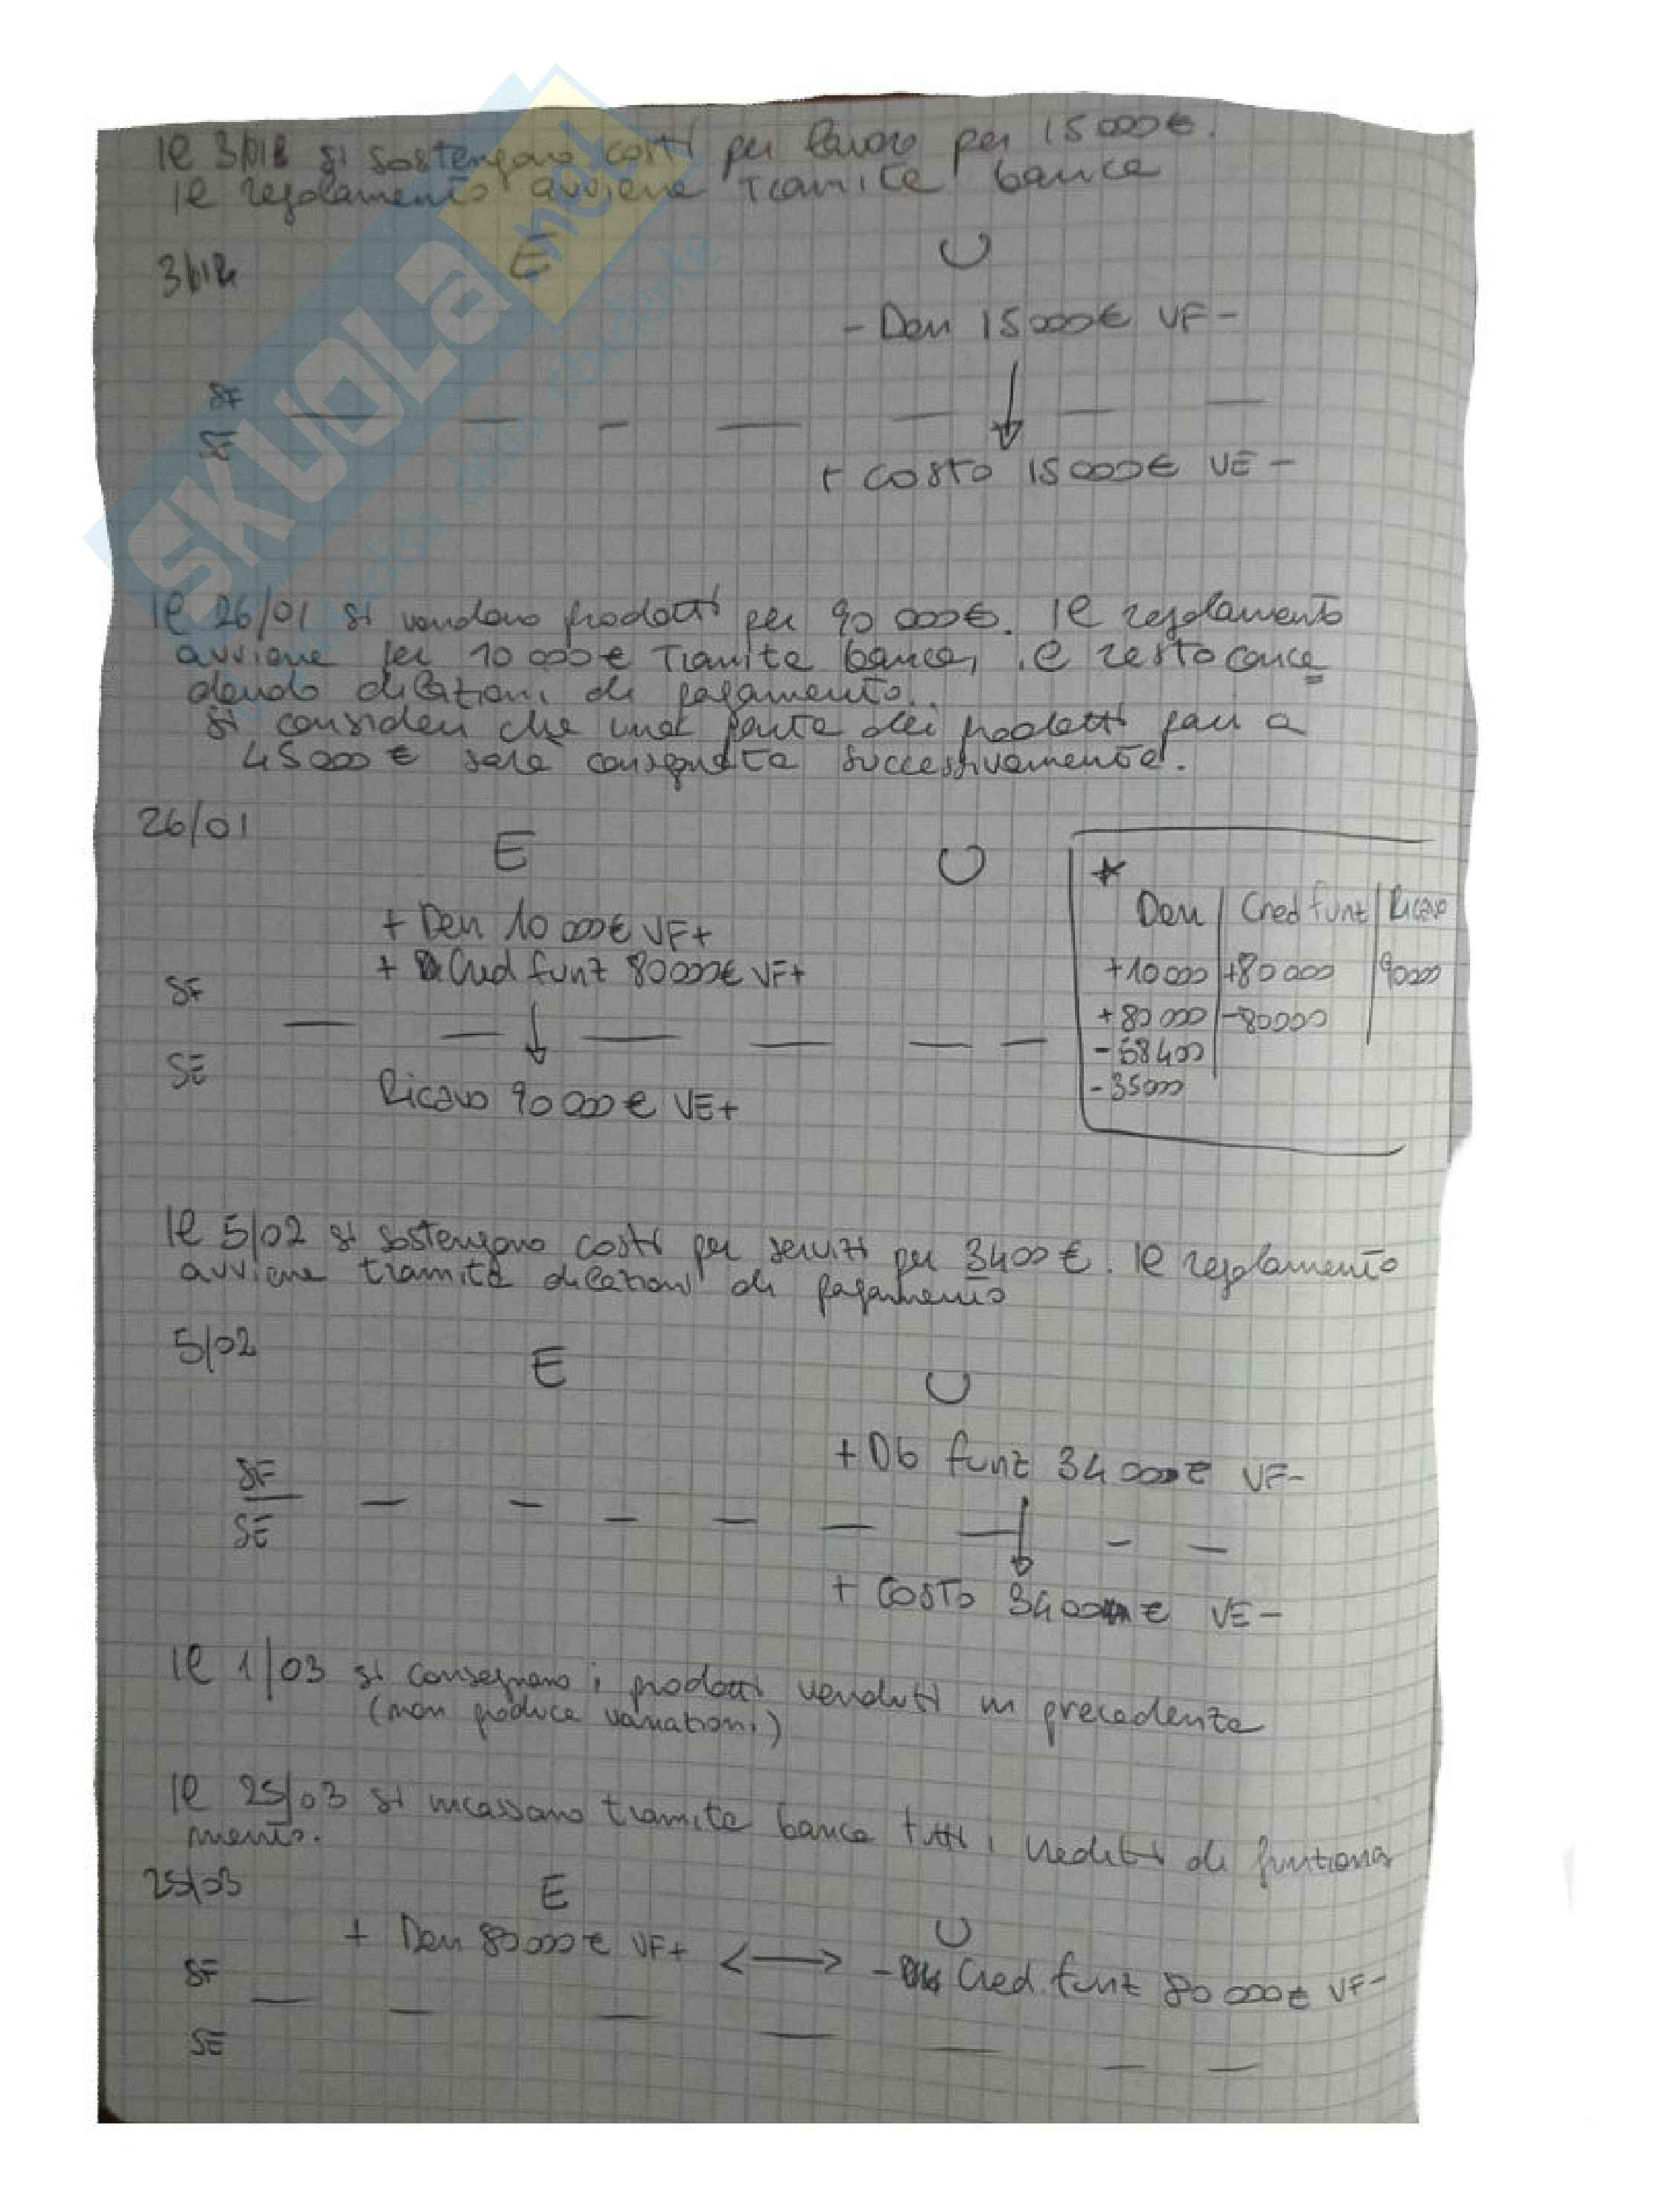 Il 3/12 si sostengono costi per lavoro per 15000€.
Il regolamento avviene tramite banca
3/12 E U
- Den 15000€ VF-
SF
SE
+ costo 15000€ VE-
Il 26/01 si vendono prodotti per 90 000€. Il regolamento
avviene per 10 000€ tramite banca, il resto conce
dendo dilazioni di pagamento.
Si consideri che una parte dei prodotti pari a
45000€ sarà consegnata successivamente.
26/01 E U
+ Den 10 000€ VF+
+ Cred funz 80000€ VF+
SF
SE
Ricavo 90 000€ VE+
*
Den Cred funz Ricavo
+10000 +80 000 90000
+80 000 -80000
-58400
-35000
Il 5/02 si sostengono costi per servizi per 3400€. Il regolamento
avviene tramite dilazioni di pagamento
5/02 E U
+ Db funz 34 000€ VF-
SF
SE
+ costo 3400 € VE-
Il 1/03 si consegnano i prodotti venduti in precedenza
(non produce variazioni)
Il 25/03 si incassano tramite banca tutti i crediti di funziona
mento.
25/03 E U
+ Den 80 000€ VF+ <-> - Cred. funz 80 000€ VF-
SF
SE
SKUOLA.net